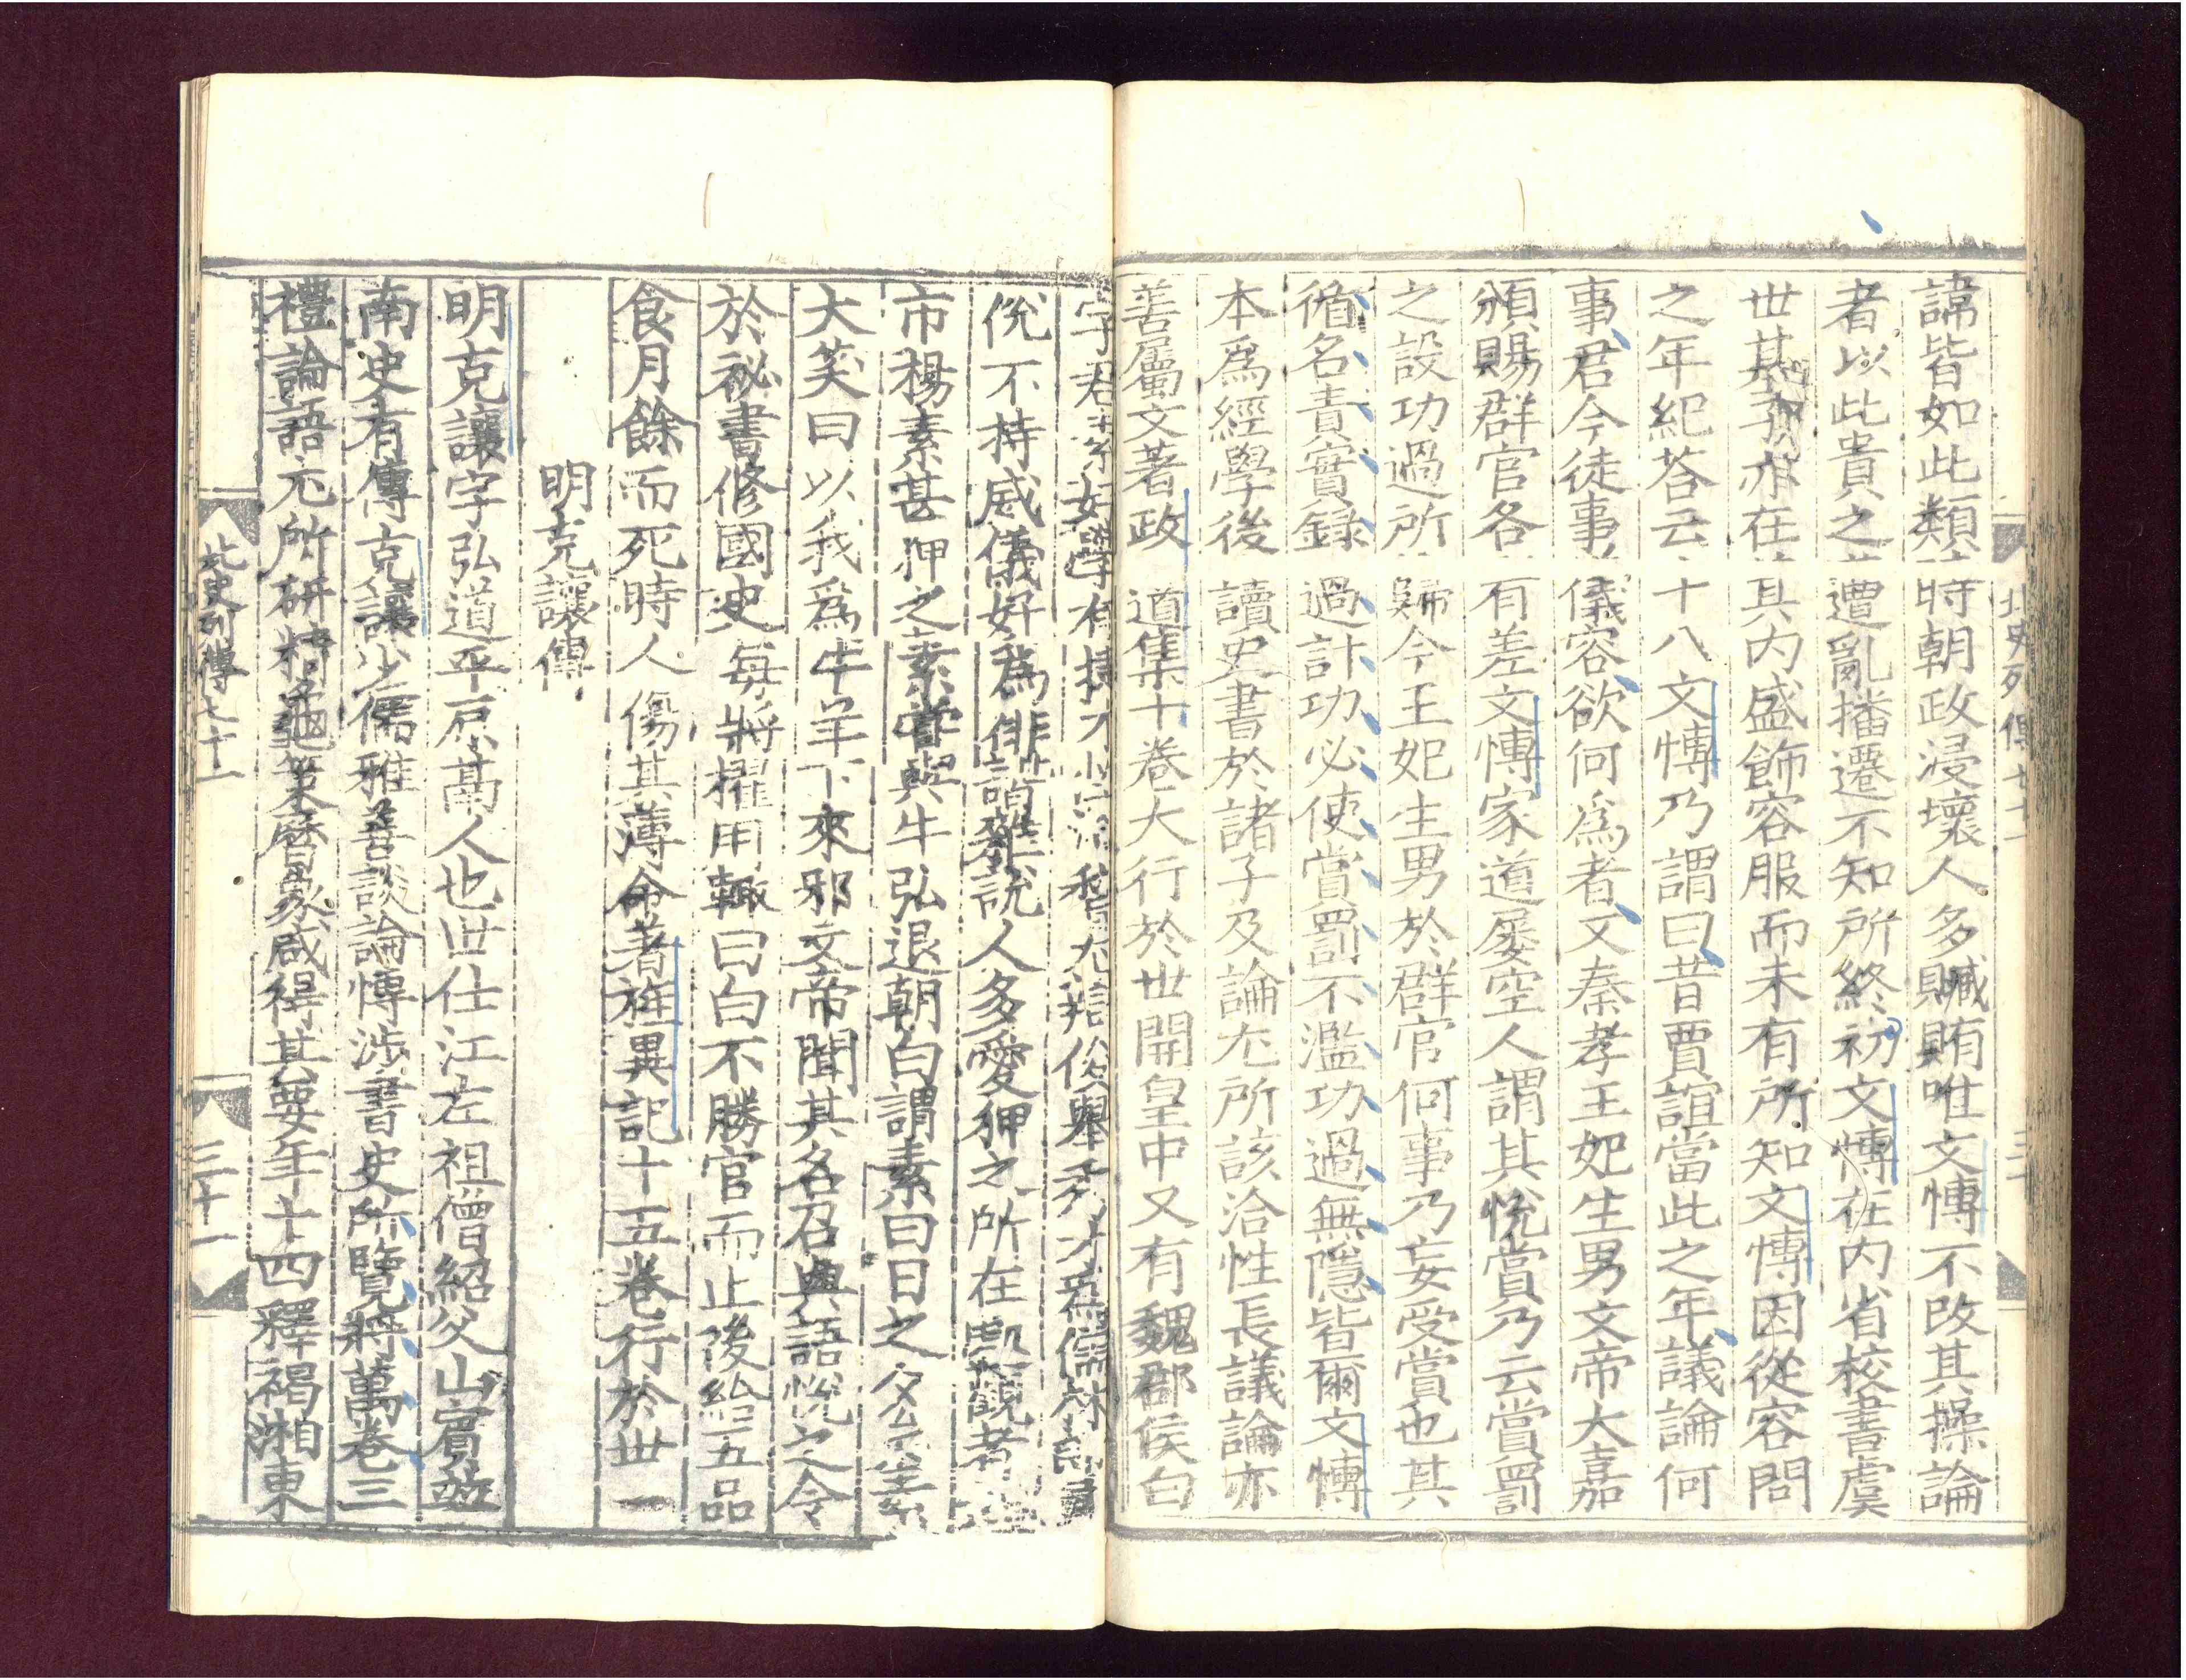 諱皆如此類時朝政浸壞人多贓賄唯文博不改其操論
者以此貴之遭亂播遷不知所終初文博在内省校書虞
世基子亦在其内盛飾容服而未有所知文博因從容問
之年紀荅云十八文博乃謂曰昔賈誼當此之年議論何
事君今徒事儀容欲何爲者又秦孝王妃生男文帝大嘉
頒賜群官各有差文博家道屡空人謂其恱賞乃云賞罰
之設功過所歸今王妃生男於群官何事乃妄受賞也其
循名責實録過計功必使賞罰不濫功過無隱皆爾文博
本爲經學後讀史書於諸子及論尤所該洽性長議論亦
善屬文著政道集十卷大行於世開皇中又有魏郡侯白
字君素好學有捷才性滑稽尤辯俊舉秀才爲儒林郎通
侻不持威儀好為俳諧雜說人多愛狎之所在觀者如
市楊素甚狎之素嘗與牛弘退朝白謂素曰日之夕矣素
大笑曰以我爲牛羊下來邪文帝聞其名召與語恱之令
於祕書修國史每將擢用輙曰白不勝官而止後給五品
食月餘而死時人傷其薄命著旌異記十五卷行於世
明克讓傳
明克讓字弘道平原鬲人也世仕江左祖僧紹父山賓並
南史有傳克讓少儒雅善談論博涉書史所覽將萬卷三
禮論語尤所研精龜策曆象咸得其要年十四釋褐湘東
北史列傳七十一
三十一